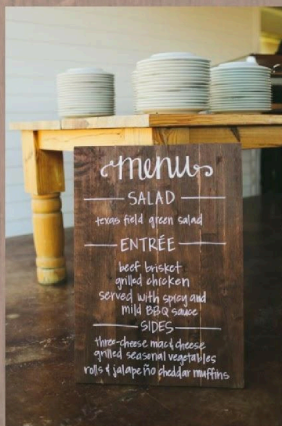 menu
SALAD
texas field green salad
ENTRÉE
beef brisket
grilled chicken
served with spicy and
mild BBQ sauce
SIDES
three-cheese mac & cheese
grilled seasonal vegetables
rolls & jalapeño cheddar muffins